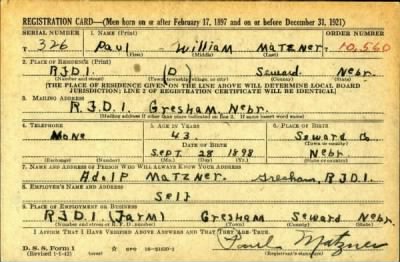 REGISTRATION CARD—(Men born on or after February 17, 1897 and on or before December 31, 1921)
SERIAL NUMBER 1. NAME (Print) ORDER NUMBER
T 326 Paul William Matzner 10,560
(First) (Middle) (Last)
2. PLACE OF RESIDENCE (Print)
R.F.D.1. (D) Seward Nebr.
(Number and street) (Town, township, village, or city) (County) (State)
[THE PLACE OF RESIDENCE GIVEN ON THE LINE ABOVE WILL DETERMINE LOCAL BOARD
JURISDICTION; LINE 2 OF REGISTRATION CERTIFICATE WILL BE IDENTICAL]
3. MAILING ADDRESS
R.F.D.1. Gresham, Nebr.
[Mailing address if other than place indicated on line 2. If same insert word same]
4. TELEPHONE 5. AGE IN YEARS 6. PLACE OF BIRTH
None 43 Seward Co
DATE OF BIRTH
Sept. 28 1898 Nebr
(Exchange) (Number) (Mo.) (Day) (Yr.) (State or country)
7. NAME AND ADDRESS OF PERSON WHO WILL ALWAYS KNOW YOUR ADDRESS
Adolp Matzner. Gresham, R.F.D.1.
8. EMPLOYER'S NAME AND ADDRESS
Self
9. PLACE OF EMPLOYMENT OR BUSINESS
R.F.D.1. (Farm) Gresham Seward Nebr
(Number and street or R. F. D. number) (Town) (County) (State)
I AFFIRM THAT I HAVE VERIFIED ABOVE ANSWERS AND THAT THEY ARE TRUE.
D. S. S. Form 1
(Revised 1-1-42) GPO Paul Matzner
(Registrant's signature)